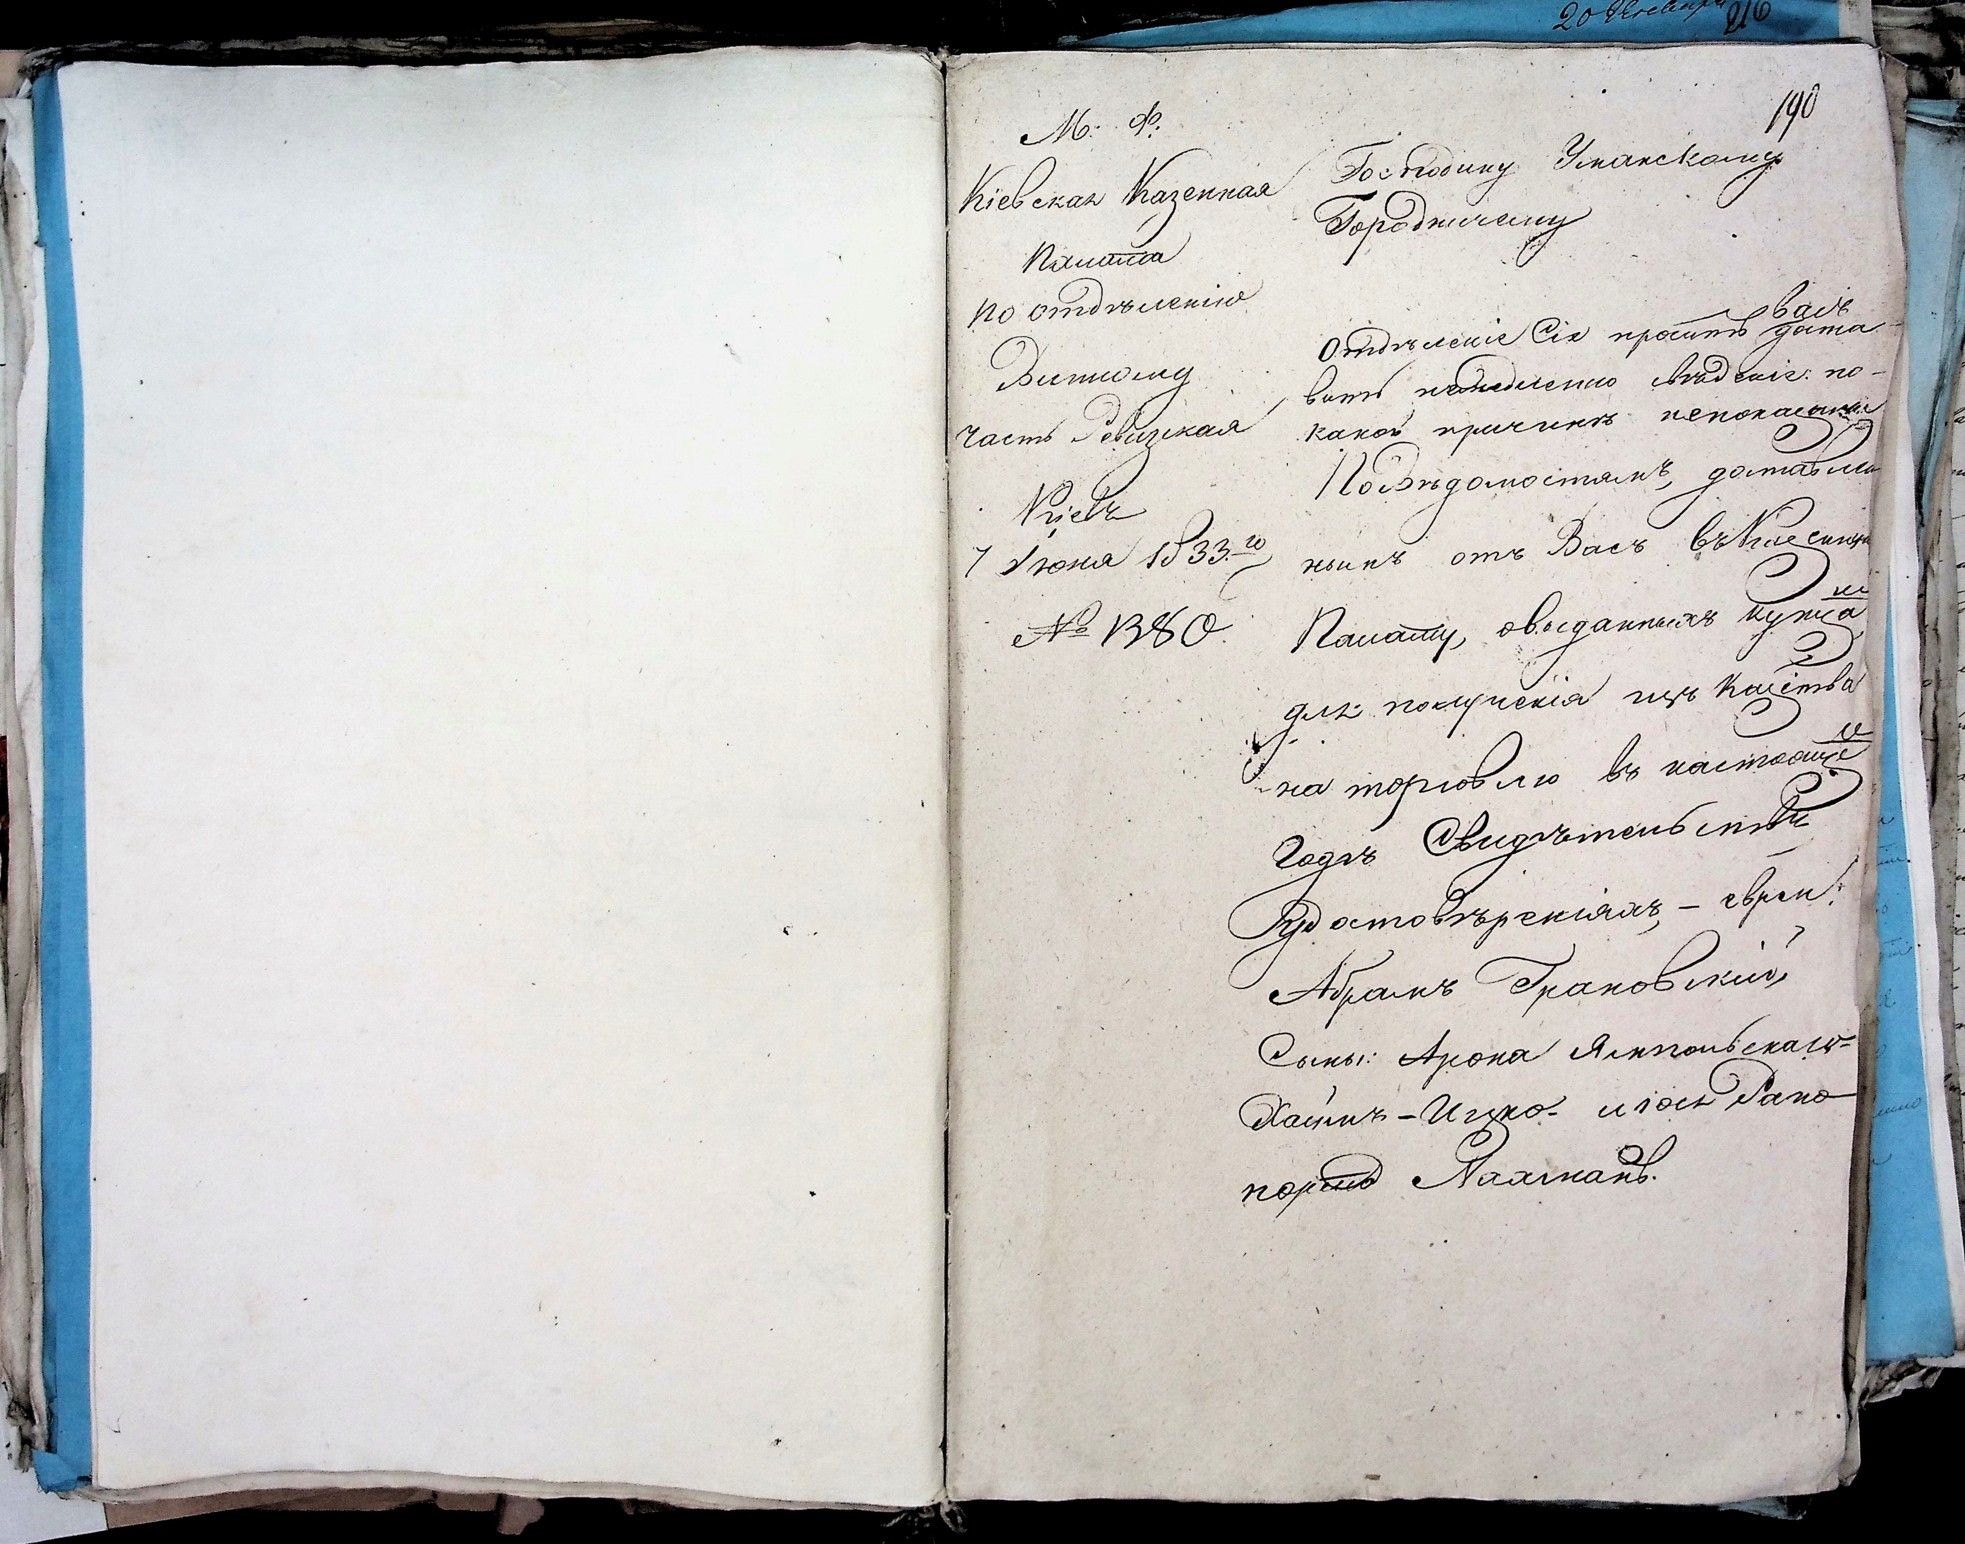 216
190
М: Ф:
Кіевская Казенная
Палата
по отдѣленію
Питному
часть Ревизская
Кіевъ
7 Іюня 1833го
№ 1380.
Господину Уманскому
Городничему
Отдѣленіе Сіе проситъ васъ доста
вить немедленно свѣденіе: по-
какой причинѣ непоказаны
По Вѣдомостямъ, доставлен
нымъ отъ Васъ въ
Палату, овыданныхъ купца
для полученія изъ Кач
на торговлю въ настояще
годъ Свидѣтельствъ
Удостовѣреніяхъ, – евреи:
Абрамъ Грановскій,
Сыны: Арона Ямпольскаго-
Хаимъ – Ицко- и Рапо
портъ Нахманъ.